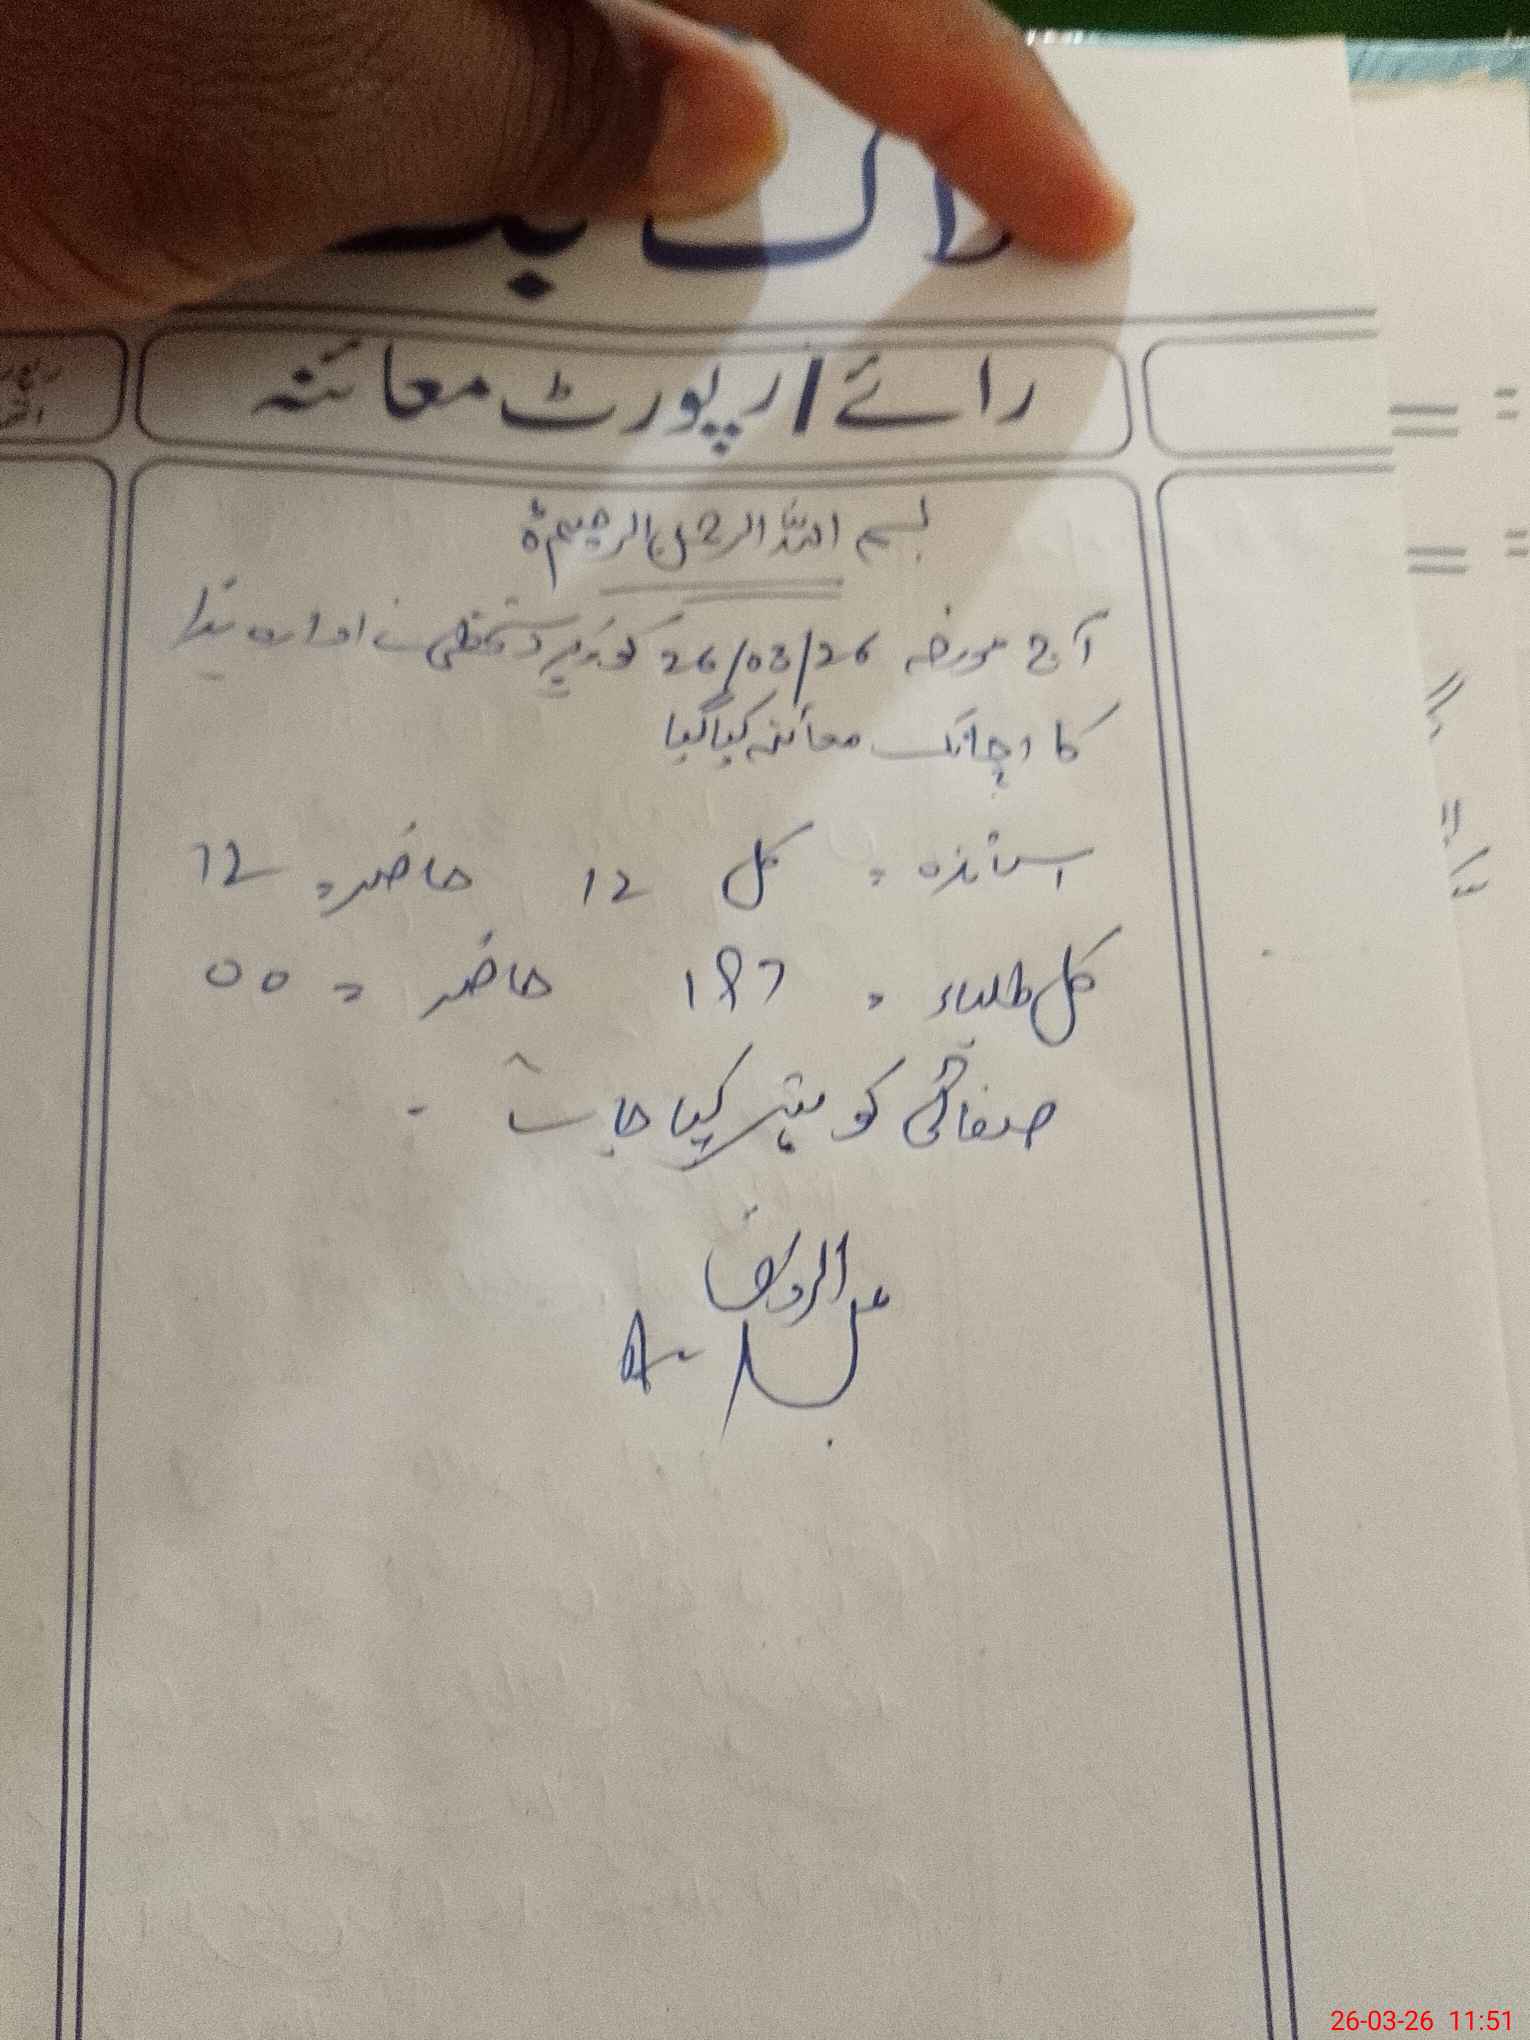 رائے / رپورٹ معائنہ
بسم اللہ الرحمن الرحیم
آج مورخہ 26/03/26 کو زیر دستخطی نے ادارہ ہذا
کا اچانک معائنہ کیا گیا
اساتذہ = کل 12 حاضر = 12
کل طلباء = 197 حاضر = 00
صفائی کو بہتر کیا جائے -
عبدالرؤف
26-03-26 11:51